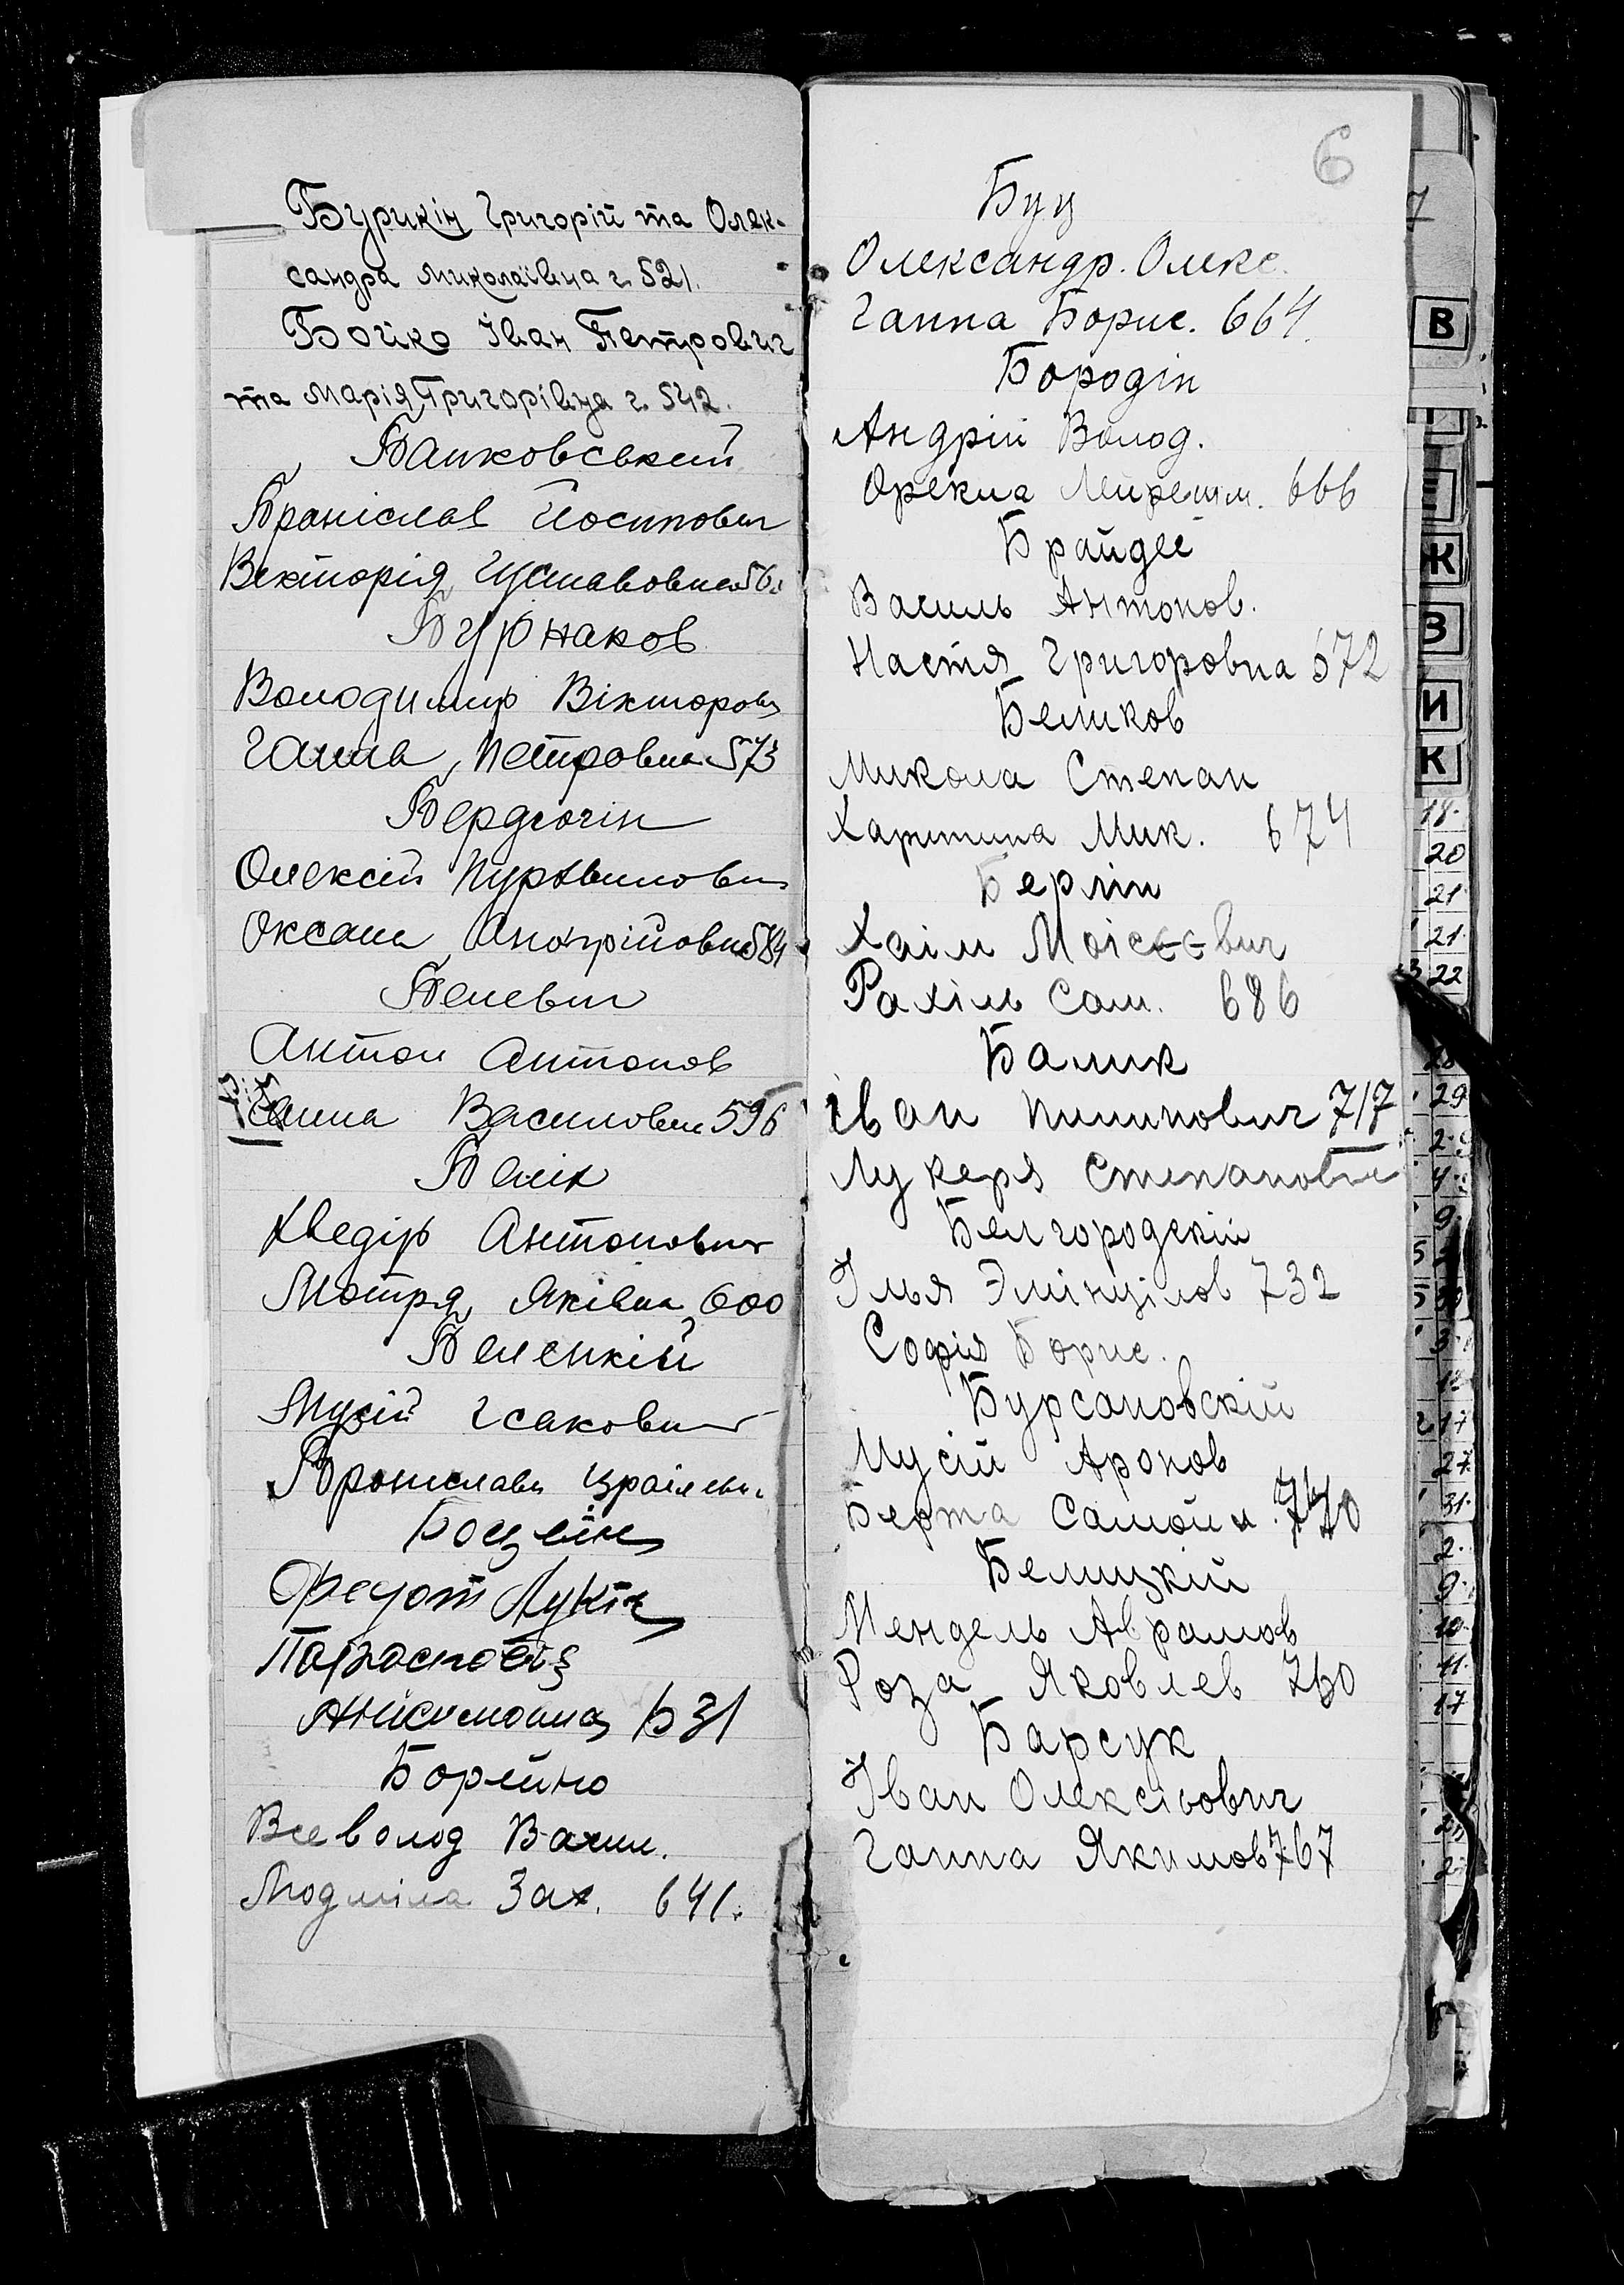 Бурикін Григорій та Олек-
сандра Миколаївна г. 521.
Бойко Іван Петрович
та Марія Григорівна г. 542.
Банковський
Броніслав Йосипович
Вікторія Густавовна
Бурнаков
Володимир Вікторов
Ганна Петровна 573
Олексій
Оксана 584
Белевич
Антон Антонов
Ганна Василовна 596
Белик
Хведір Антонович
Мотря Яківна 600
Беленкій
Мусій Ісакович
Броніслава Ізраілевн.
Федот Лукич
631
Борейко
Всеволод Васил.
Людміла Зах. 641.
6
Буц
Олександр. Олекс.
Ганна Борис. 664.
Бородін
Андрій Волод.
666
Брайдес
Василь Антонов.
Настя Григоровна 672
Беликов
Микола Степан
Харитина Мик. 674
Берлін
Хаім Моісеєвич
Рахіль Сам. 686
Балик
Іван Пилипович 717
Лукеря Степановна
Белгородскій
Ілья 732
Софія Борис.
Бурсановскій
Мусій Аронов
Берта Самойл.
Белицкій
Мендель Аврамов
Роза Яковлев 760
Барсук
Іван Олексійович
Ганна Якимов 767
В
К
З
И
К
18.
20
21
21
22
29